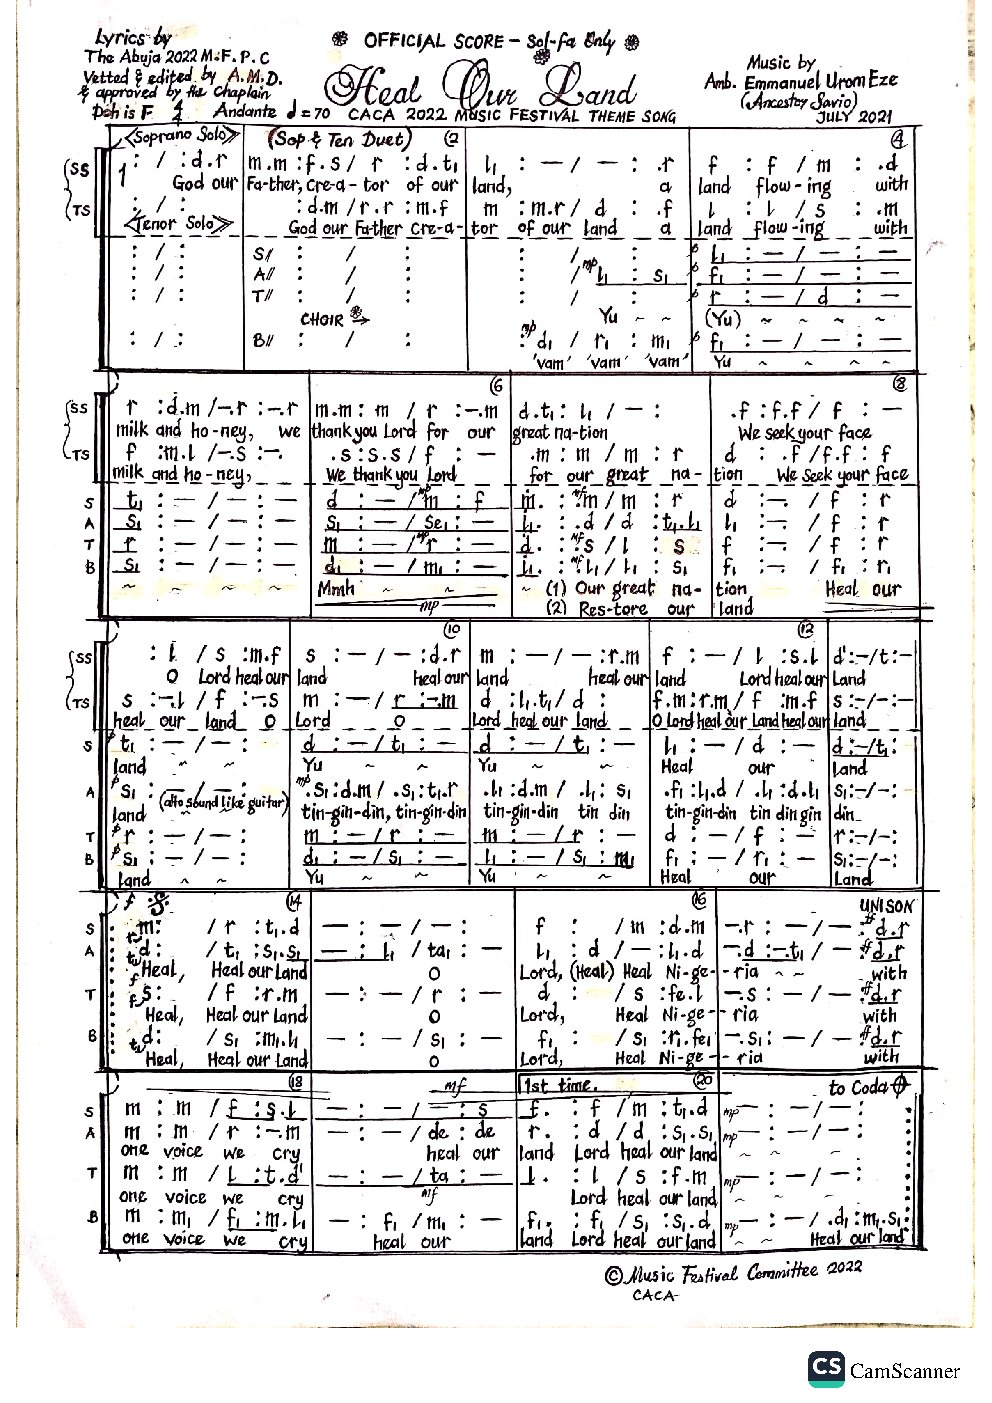 Lyrics by
The Abuja 2022 M.F.P.C
Vetted & edited by A.M.D.
& approved by the Chaplain
Doh is F 4/4 Andante ♩=70
OFFICIAL SCORE - Sol-fa Only
Heal Our Land
CACA 2022 MUSIC FESTIVAL THEME SONG
Music by
Amb. Emmanuel Urom Eze
(Ancestor Savio)
JULY 2021
<Soprano Solo>> (Sop & Ten Duet) (2) (4)
SS : / : d.r m.m : f.s / r : d.t₁ l₁ : — / — : .r f : f / m : .d
God our Fa-ther, Cre-a-tor of our land, a land flow-ing with
TS : / : : d.m / r.r : m.f m : m.r / d : .f l : l / s : .m
<<Tenor Solo>> God our Father Cre-a-tor of our land a land flow-ing with
: / : S// : / : : / : p l₁ : — / — : —
: / : A// : / : : / mp l₁ : s₁ p f₁ : — / — : —
: / : T// : / : : / : p r : — / d : —
CHOIR Yu ~ ~ (Yu) ~ ~ ~ ~
: / : B// : / : mp : d₁ / r₁ : m₁ p f₁ : — / — : —
'vam' 'vam' 'vam' Yu ~ ~ ~ ~
(6) (8)
SS r : d.m / —.r : —.r m.m : m / r : —.m d.t₁ : l₁ / — : .f : f.f / f : —
milk and ho-ney, we thank you Lord for our great na-tion We seek your face
TS f : m.l / —.s : —. .s : s.s / f : — .m : m / m : r d : .f / f.f : f
milk and ho-ney, We thank you Lord for our great na-tion We seek your face
S t₁ : — / — : — d : — / mp m : f m. : mf m / m : r d : — / f : r
A s₁ : — / — : — s₁ : — / se₁ : — l₁. : .d / d : t₁.l₁ l₁ : — / f : r
T r : — / — : — m : — / mp r : — d. : mf s / l : s f : — / f : r
B s₁ : — / — : — d₁ : — / m₁ : — l₁. : mf l₁ / l₁ : s₁ f₁ : — / f₁ : r₁
~ ~ ~ ~ Mmh ~ ~ ~ (1) Our great na-tion Heal our
mp (2) Res-tore our land
(10) (12)
SS : l / s : m.f s : — / — : d.r m : — / — : r.m f : — / l : s.l d' : — / t : —
O Lord heal our land heal our land heal our land Lord heal our Land
TS s : —.l / f : —.s m : — / r : —.m d : l₁.t₁ / d : f.m : r.m / f : m.f s : — / — :
heal our land O Lord O Lord heal our land O Lord heal our Land heal our land
S p t₁ : — / — : — d : — / t₁ : — d : — / t₁ : — l₁ : — / d : — d : — / t₁ :
land ~ ~ Yu ~ ~ Yu ~ ~ Heal our Land
A p s₁ : — / — : — mp .s₁ : d.m / .s₁ : t₁.r .l₁ : d.m / .l₁ : s₁ .f₁ : l₁.d / .l₁ : d.l₁ s₁ : — / — :
land (alto sound like guitar) tin-gin-din, tin-gin-din tin-gindin tin din tin-gin din tin dingin din
T p r : — / — : — m : — / r : — m : — / r : — d : — / f : — r : — / — :
B p s₁ : — / — : — d₁ : — / s₁ : — l₁ : — / s₁ : m₁ f₁ : — / r₁ : — s₁ : — / — :
land ~ ~ Yu ~ ~ Yu ~ ~ Heal our Land
f (14) (16) UNISON
S m : / r : t₁.d — : — / — : f : / m : d.m —.r : — / — : d.r
A d : / t₁ : s₁.s₁ — : l₁ / ta₁ : — l₁ : d / — : l₁.d —.d : —.t₁ / — : d.r
Heal, Heal our Land O Lord, (Heal) Heal Ni-ge-ria ~ ~ with
T s : / f : r.m — : — / r : — d : / s : fe.l —.s : — / — : d.r
Heal, Heal our Land O Lord, Heal Ni-ge-ria with
B d : / s₁ : m₁.l₁ — : — / s₁ : — f₁ : / s₁ : r₁.fe₁ —.s₁ : — / — : d.r
Heal, Heal our Land O Lord, Heal Ni-ge-ria with
(18) mf 1st time. (20) to Coda
S m : m / f : s.l — : — / — : s f. : f / m : t₁.d mp — : — / — :
A m : m / r : —.m — : — / de : de r. : d / d : s₁.s₁ mp — : — / — :
one voice we cry heal our land Lord heal our land ~ ~ ~
T m : m / l : t.d' — : — / ta : — l. : l / s : f.m mp — : — / — :
one voice we cry mf Lord heal our land ~ ~ ~
B m : m₁ / f₁ : m₁.l₁ — : f₁ / m₁ : — f₁. : f₁ / s₁ : s₁.d mp — : — / .d₁ : m₁.s₁
one voice we cry heal our land Lord heal our land ~ ~ Heal our land
© Music Festival Committee 2022
CACA
CS CamScanner